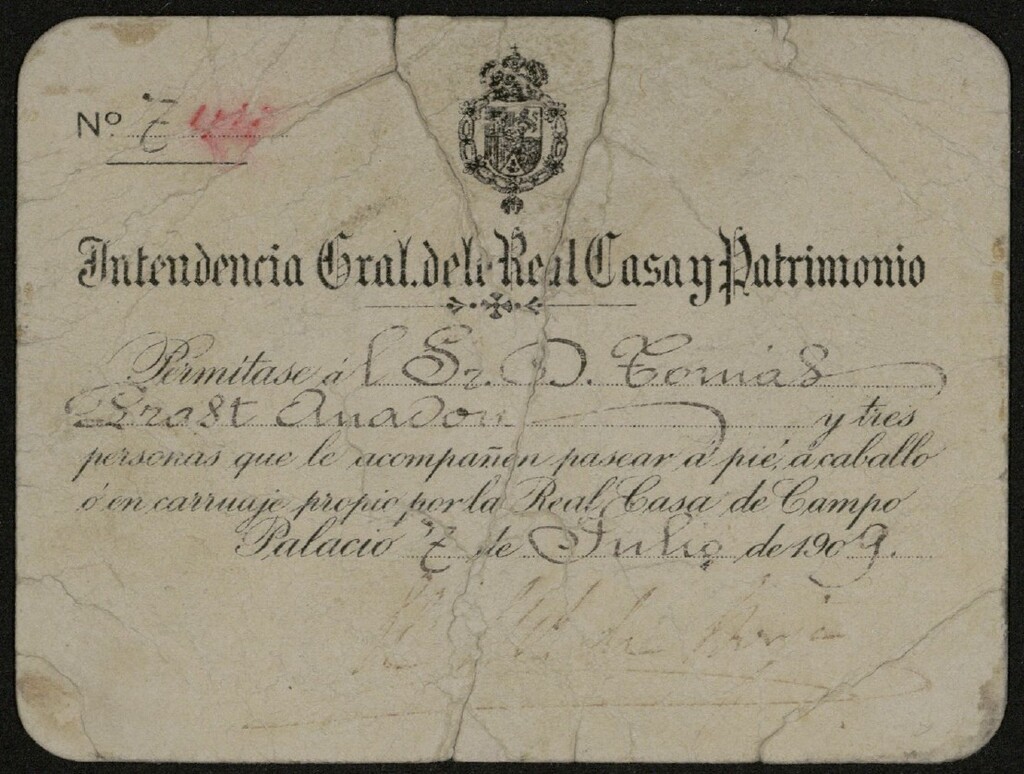 Nº 7
Intendencia Gral. de la Real Casa y Patrimonio
Permitase á l Sr. D. Tomás
Prast Anadon y tres
personas que le acompañen pasear á pié, á caballo
ó en carruaje propio por la Real Casa de Campo
Palacio 7 de Julio de 1909.